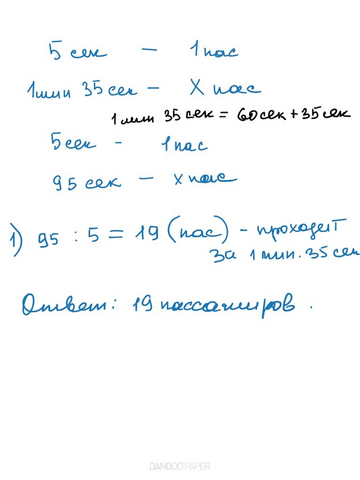 5 сек — 1 пас
1 мин 35 сек — X пас
1 мин 35 сек = 60 сек + 35 сек
5 сек - 1 пас
95 сек — x пас
1) 95 : 5 = 19 (пас) - проходит
за 1 мин. 35 сек
Ответ: 19 пассажиров.
BAMBOO PAPER